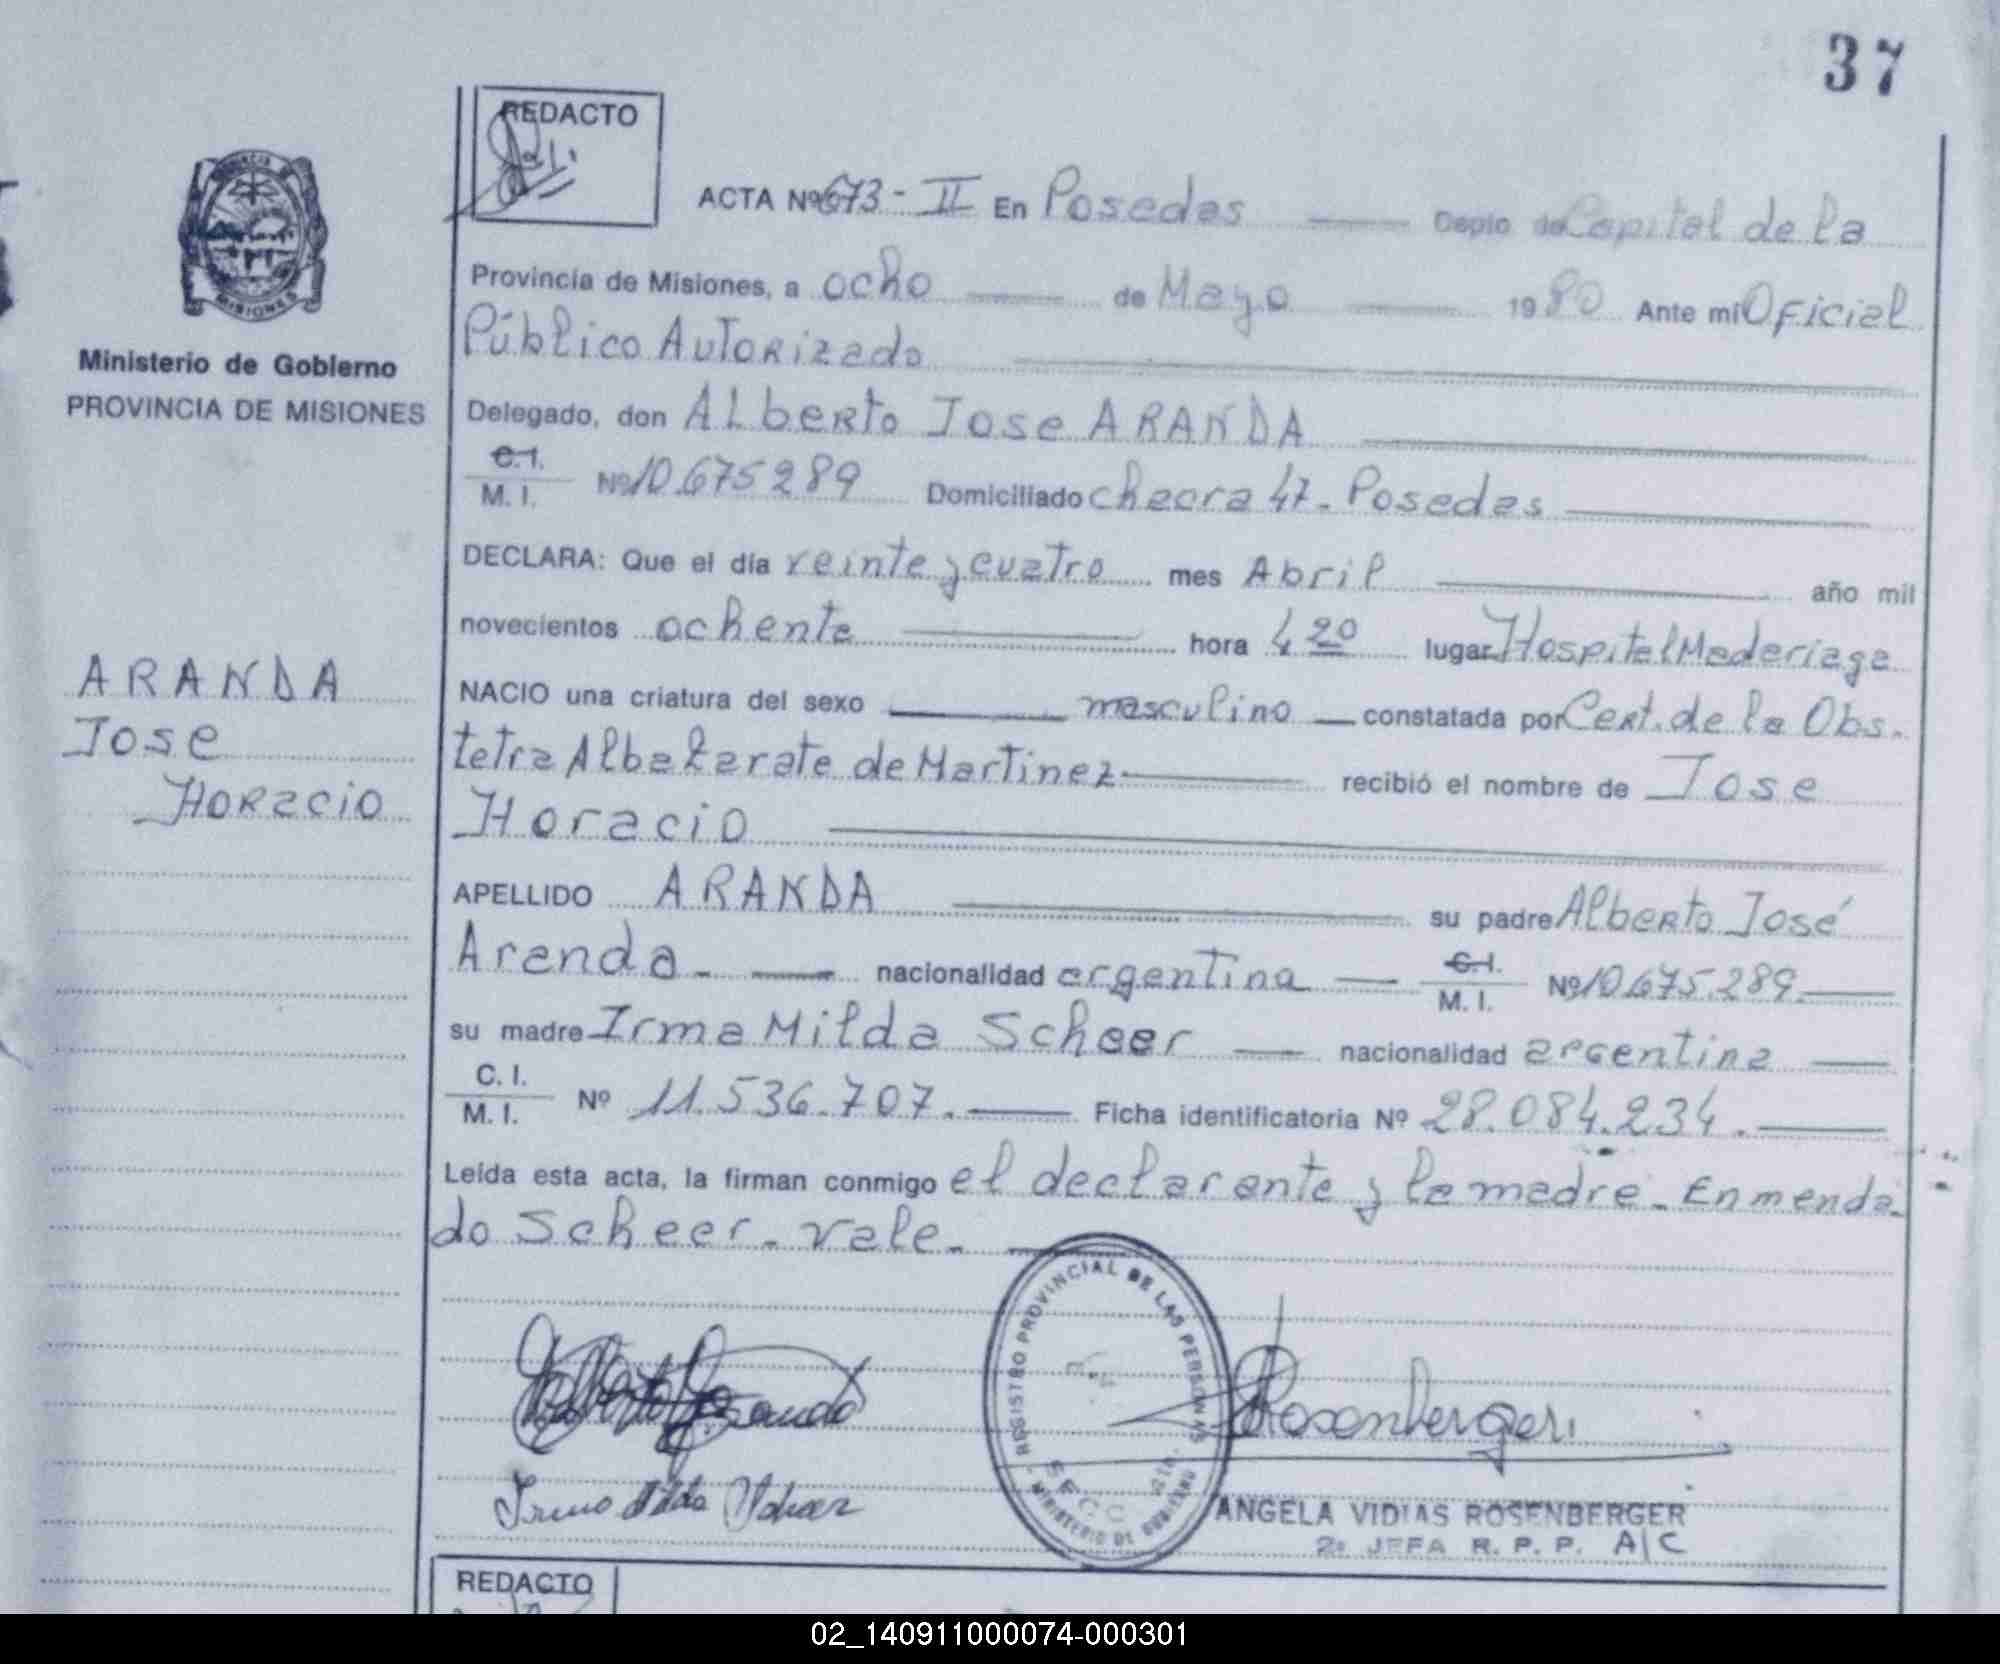 37
REDACTO
ACTA Nº 673 - II En Posadas Depto de Capital de la
Provincia de Misiones, a ocho de Mayo 1980 Ante mi Oficial
Público Autorizado
Ministerio de Gobierno
PROVINCIA DE MISIONES
Delegado, don Alberto Jose ARANDA
C.I.
M. I. Nº 10.675289 Domiciliado chacra 47 - Posadas
DECLARA: Que el día veinte y cuatro mes Abril año mil
novecientos ochenta hora 4 20 lugar Hospital Madariaga
ARANDA
Jose
Horacio
NACIO una criatura del sexo masculino constatada por Cert. de la Obs.
tetra Alba Zarate de Martinez recibió el nombre de Jose
Horacio
APELLIDO ARANDA su padre Alberto José
Aranda - nacionalidad argentina C.I.
M. I. Nº 10.675.289
su madre Irma Milda Scheer nacionalidad argentina
C. I.
M. I. Nº 11.536.707. Ficha identificatoria Nº 28.084.234.
Leída esta acta, la firman conmigo el declarante y la madre - Enmenda-
do Scheer - vale -
REGISTRO PROVINCIAL DE LAS PERSONAS
MINISTERIO DE GOBIERNO
SECC
Rosenberger
ANGELA VIDIAS ROSENBERGER
2ª JEFA R. P. P. A/C
REDACTO
02_140911000074-000301